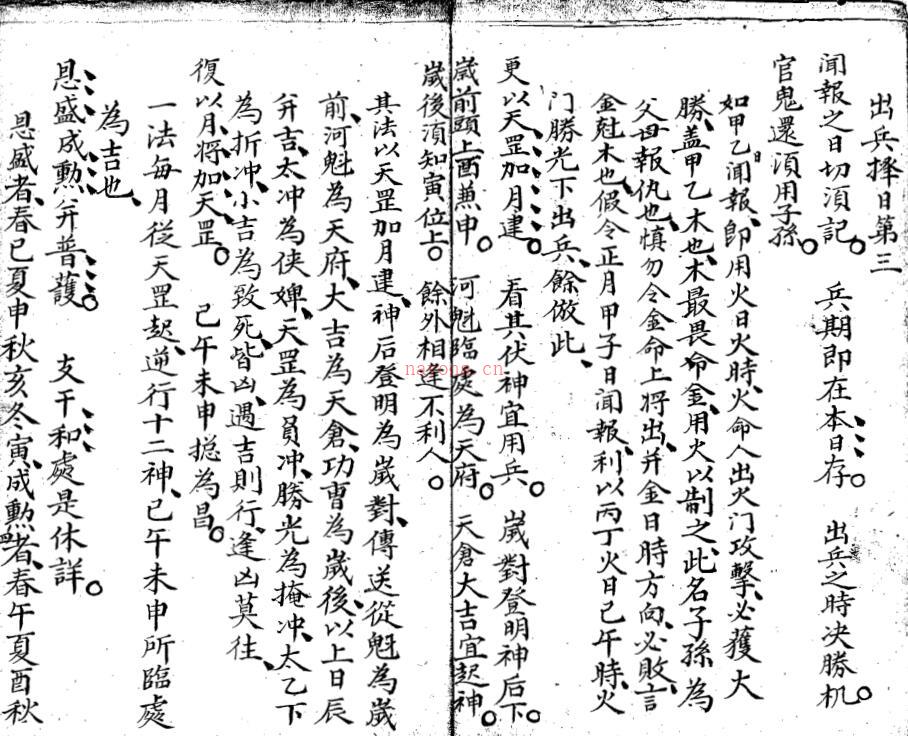 出兵擇日第三
聞報之日切須記。 兵期即在本日存。 出兵之時决勝机。
官鬼還須用子孫。
如甲乙聞報、即用火日火時、火命人出火门攻擊、必獲大
勝、盖甲乙木也、木最畏命金、用火以制之、此名子孫為
父母報仇也、慎勿令金命上將出、并金日時方向、必敗、言
金尅木也、假令正月甲子日聞報、利以丙丁火日巳午時、火
门勝光下出兵、餘倣此、
更以天罡加月建。 看其伏神宜用兵。 歲對登明神后下。
歲前頤上酉兼申。 河魁臨處為天府。 天倉大吉宜起神。
歲後須知寅位上。 餘外相逢不利人。
其法以天罡加月建、神后登明為歲對、傳送從魁為歲
前、河魁為天府、大吉為天倉、功曹為歲後、以上日辰
并吉、太冲為侠婢、天罡為員冲、勝光為掩冲、太乙下
為折冲、小吉為致死、皆凶、遇吉則行、逢凶莫往、
復以月將加天罡。 巳午未申揔為昌。
一法每月從天罡起、逆行十二神、巳午未申所臨處
為吉也、
恩盛成勲并普護。 支干和處是休詳。
恩盛者、春巳夏申秋亥冬寅、成勲者、春午夏酉秋
nayona.cn